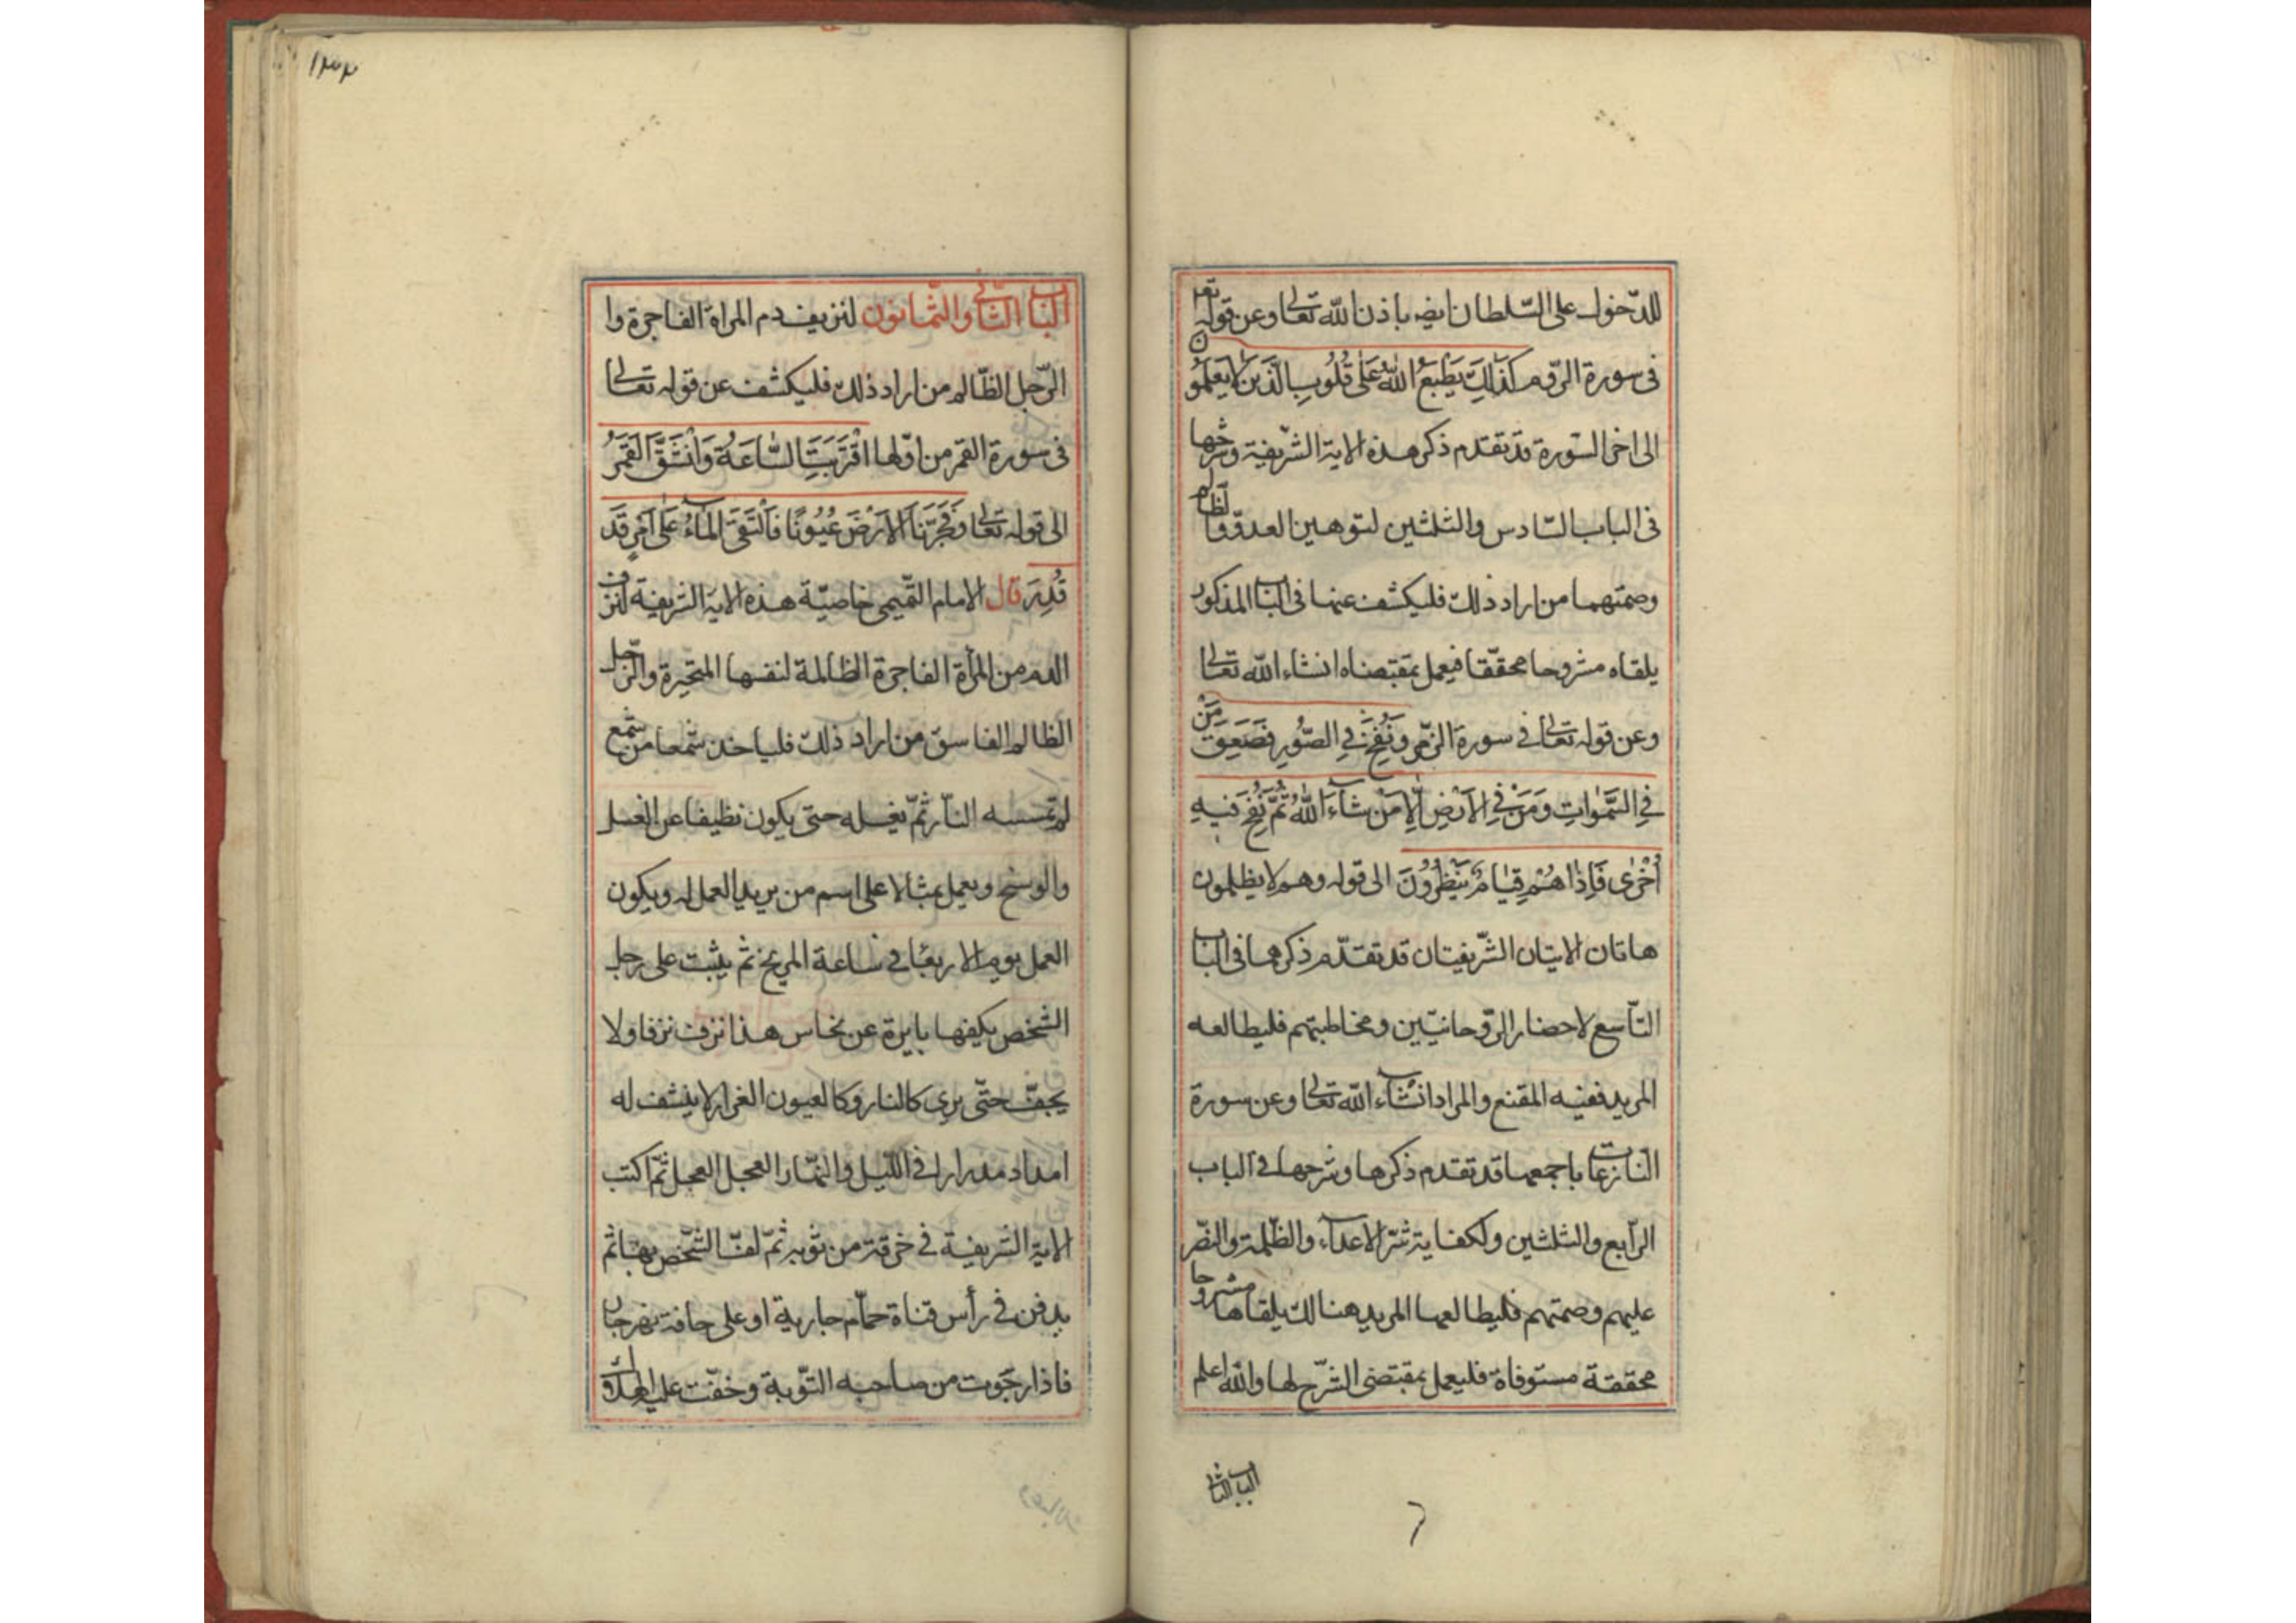 للدّخول على السّلطان ايضا باذن الله تعالى وعن قوله تعا
فى سورة الرّوم كَذَلِكَ يَطْبَعُ اللهُ عَلَى قُلُوبِ الَّذِينَ لَا يَعْلَمُونَ
الى اخر السّورة قد تقدم ذكر هذه الاية الشّريفة وشرحها
فى الباب السّادس والثلثين لتوهين العدوّ والظالم
وصمتهما من اراد ذلك فليكشف عنها فى الباب المذكور
يلقاه مشروحا محقّقا فيعمل بمقتضاه انشاء الله تعالى
وعن قوله تعالى فى سورة الزّمر وَنُفِخَ فِي الصُّورِ فَصَعِقَ مَنْ
فِي السَّمَوَاتِ وَمَنْ فِي الْاَرْضِ اِلَّا مَنْ شَاءَ اللهُ ثُمَّ نُفِخَ فِيهِ
أُخْرَى فَاِذَا هُمْ قِيَامٌ يَنْظُرُونَ الى قوله وهم لا يظلمون
هاتان الايتان الشّريفيتان قد تقدّم ذكرهما فى الباب
التّاسع لاحضار الرّوحانيّين ومخاطبتهم فليطالعه
المريد ففيه المقنع والمراد انشاء الله تعالى وعن سورة
النّازعات باجمعها قد تقدم ذكرها وشرحها فى الباب
الرّابع والثلثين ولكفاية شرّ الاعداء والظّلمة والنّصر
عليهم وصمتهم فليطالعها المريد هنالك يلقاها مشروحا
محققة مستوفاة فليعمل بمقتضى الشّرح لها والله اعلم
الباب الثانى
١٣٣
الباب الثانى والثّمانون لنزيف دم المراة الفاجرة وا
الرّجل الظّالم من اراد ذلك فليكشف عن قوله تعالى
فى سورة القمر من اوّلها اقْتَرَبَتِ السَّاعَةُ وَانْشَقَّ الْقَمَرُ
الى قوله تعالى وَفَجَّرْنَا الْاَرْضَ عُيُونًا فَالْتَقَى الْمَاءُ عَلَى اَمْرٍ قَدْ
قُدِرَ قال الامام التّميمى خاصيّة هذه الاية الشريفة لنزف
الدم من المرأة الفاجرة الظالمة لنفسها المتحيرة والرّجل
الظالم الفاسق من اراد ذلك فلياخذ شمعا من شمع
لم تمسسه النّار ثمّ يغسله حتى يكون نظيفا عن العسل
والوسخ ويعمل مثالا على اسم من يريد العمل له ويكون
العمل يوم الاربعا فى ساعة المريخ ثم يثبت على رجل
الشخص بابرة عن نحاس هذا نزف نزفا ولا
يجفّ حتّى يرى كالنار وكالعيون الغزار لا ينشف له
امداد مدرارا فى اللّيل والنّهار العجل العجل ثمّ اكتب
الاية الشريفة فى خرقة من ثوبه ثمّ لفّ الشّخص بها ثم
يدفن فى رأس قناة حمّام جارية او على حافة نهر جار
فاذا رجوت من صاحبه التّوبة وخفت عليه